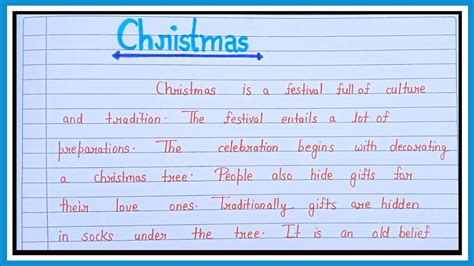 Christmas
Christmas is a festival full of culture
and tradition. The festival entails a lot of
preparations. The celebration begins with decorating
a christmas tree. People also hide gifts for
their love ones. Traditionally gifts are hidden
in socks under the tree. It is an old belief